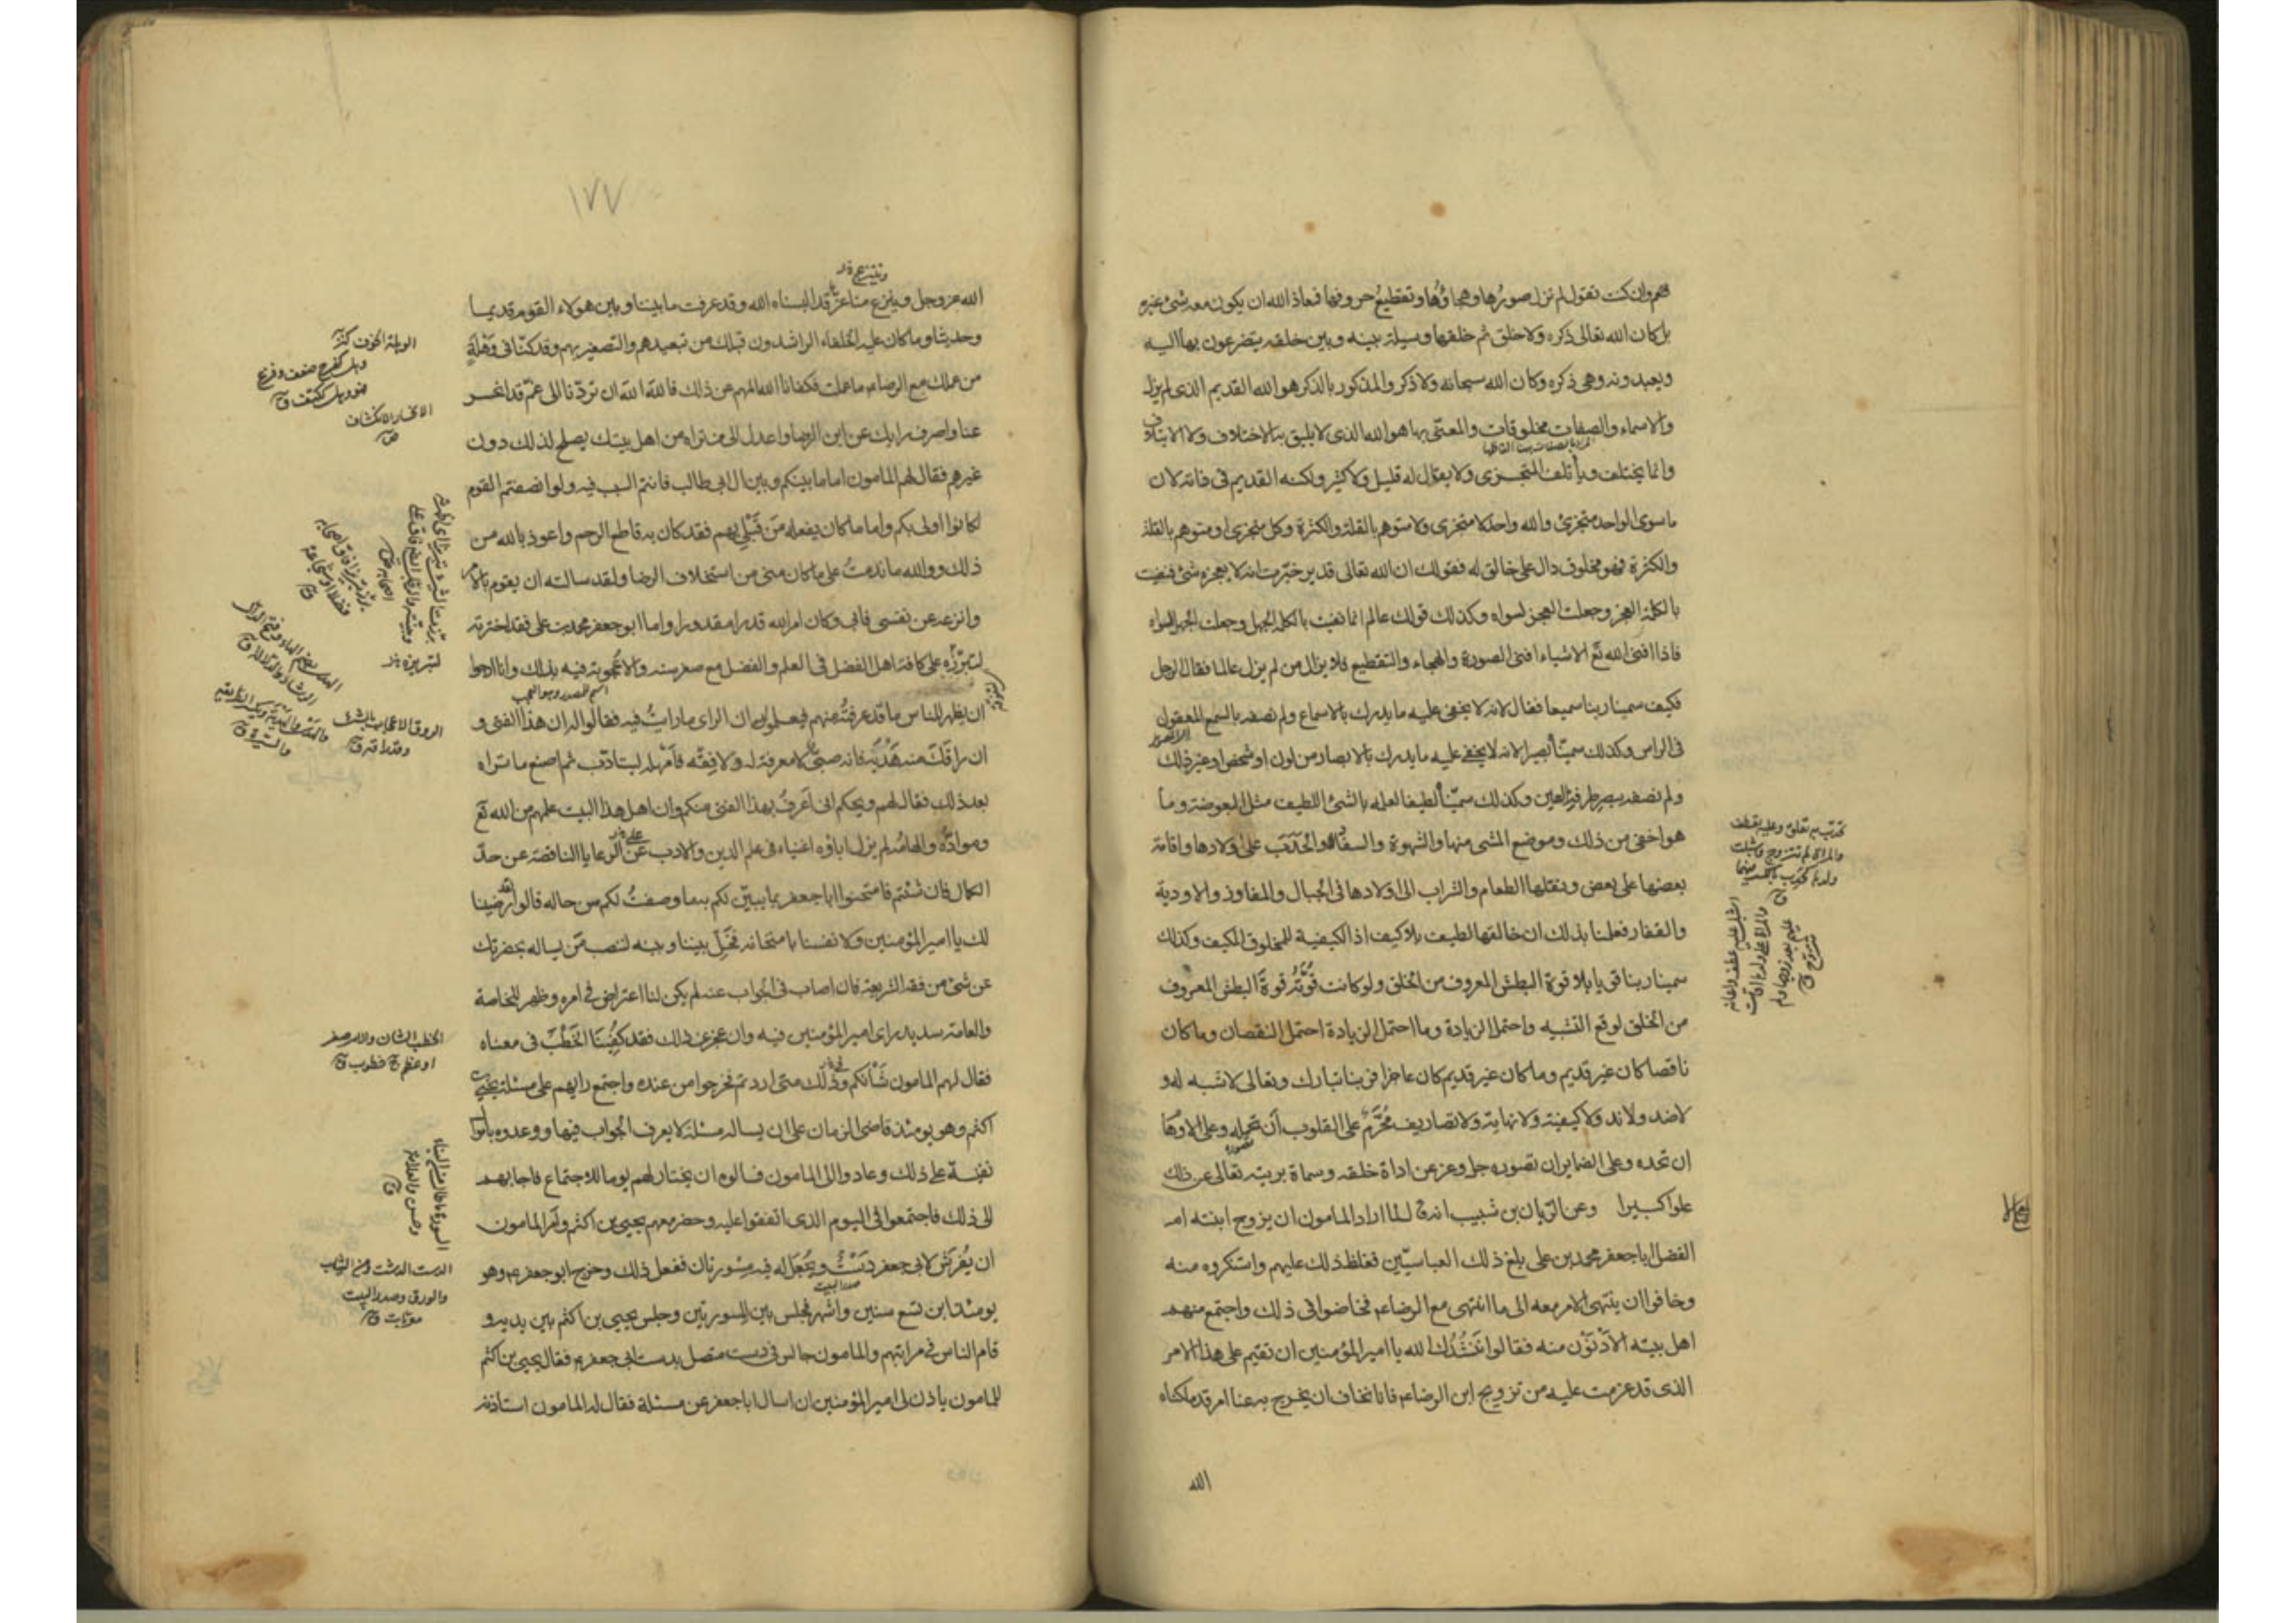 فنعم وان كنت تقول لم تزل صورُها وهجاؤُها وتقطيعُ حروفها فمعاذ الله ان يكون معه شئ غيره
بل كان الله تعالى ذكره ولا خلق ثم خلقها وسيلة بينه وبين خلقه يتضرعون بها اليه
ويعبدونه وهى ذكره وكان الله سبحانه ولا ذكر والمذكور بالذكر هو الله القديم الذى لم يزل
والاسماء والصفات مخلوقات والمعنى بها هو الله الذى لا يليق به الاختلاف ولا الايتلاف
وانما يختلف ويأتلف المتجزى ولا يقال له قليل ولا كثير ولكنه القديم فى ذاته لان
ما سوى الواحد متجزئ والله واحد لا متجزى ولا متوهم بالقلة والكثرة وكل متجزى او متوهم بالقلة
والكثرة فهو مخلوق دال على خالق له فقولك ان الله تعالى قدير خبّرت انه لا يعجزه شئ فنفيت
بالكلمة العجز وجعلت العجز لسواه وكذلك قولك عالم انما نفيت بالكلمة الجهل وجعلت الجهل لسواه
فاذا افنى الله تع الاشياء افنى الصورة والهجاء والتقطيع فلا يزال من لم يزل عالما فقال الرجل
فكيف سمينا ربنا سميعا فقال لانه لا يخفى عليه ما يدرك بالاسماع ولم نصفه بالسمع المعقول
فى الراس وكذلك سميّناه بصيرا لانه لا يخفى عليه ما يدرك بالابصار من لون او شخص او غير ذلك
ولم نصفه ببصر طرفة العين وكذلك سميّناه لطيفا لعلمه بالشئ اللطيف مثل البعوضة وما
هو اخفى من ذلك وموضع المشى منها والشهوة والسفاد والحَدَب على اولادها واقامة
بعضها على بعض ونقلها الطعام والشراب الى اولادها فى الجبال والمفاوز والاودية
والقفار فعلمنا بذلك ان خالقها لطيف بلا كيف اذ الكيفية للمخلوق المكيف وكذلك
سمينا ربنا قويا بلا قوة البطش المعروف من الخلق ولو كانت قُوّتُه قوةَ البطش المعروف
من الخلق لوقع التشبيه واحتمل الزيادة وما احتمل الزيادة احتمل النقصان وما كان
ناقصا كان غير قديم وما كان غير قديم كان عاجزا فربنا تبارك وتعالى لا شبه له و
لا ضد ولا ند ولا كيفية ولا نهاية ولا تصاريف مُحَرَّم على القلوب ان تحمله وعلى الاوهام
ان تحده وعلى الضماير ان تصوره جل وعز عن اداة خلقه وسماة بريته تعالى عن ذلك
علوا كبيرا وعن الرّيان بن شبيب انه ق لما اراد المامون ان يزوج ابنته ام
الفضل ابا جعفر محمد بن على بلغ ذلك العباسيّين فغلظ ذلك عليهم واستكروه منه
وخافوا ان ينتهى الامر معه الى ما انتهى مع الرضا عم فخاضوا فى ذلك واجتمع منهم
اهل بيته الاَدْنَوْن منه فقالوا نَنْشُدُك الله يا امير المؤمنين ان تقيم على هذا الامر
الذى قد عزمت عليه من تزويج ابن الرضا عم فانا نخاف ان يخرج به عنا امر قد ملكناه
الله
حدب به تعلق وعليه تعطف
والمراة لم تتزوج واشبلت
على ولدها
١٧٧
وتنتزع
الله عز وجل وينزع منا عزّا قد البسناه الله وقد عرفت ما بيننا وبين هولاء القوم قديما
وحديثا وما كان عليه الخلفاء الراشدون قبلك من تبعيدهم والتصغير بهم وقد كنّا فى وَهْلَةٍ
من عملك مع الرضا عم ما عملت فكفانا الله المهم من ذلك فالله الله ان تردّنا الى غمّ قد انحسر
عنا واصرف رايك عن ابن الرضا واعدل الى من تراه من اهل بيتك يصلح لذلك دون
غيرهم فقال لهم المامون اما ما بينكم وبين ال ابى طالب فانتم السبب فيه ولو انصفتم القوم
لكانوا اولى بكم واما ما كان يفعله مَن قَبْلى بهم فقد كان به قاطع الرحم واعوذ بالله من
ذلك ووالله ما ندمتُ على ما كان منى من استخلاف الرضا ولقد سالته ان يقوم بالامر
وانزعه عن نفسى فابى وكان امر الله قدرا مقدورا واما ابو جعفر محمد بن على فقد اخترته
لتبرّزه على كافة اهل الفضل فى العلم والفضل مع صغر سنه والاعجوبة فيه بذلك وانا ارجوا
اسم المصدر وهو العجب
ان يظهر للناس ما قد عرفتُه منهم فيعلموا ان الراى ما رايتُ فيه فقالوا له ان هذا الفتى و
ان راقَكَ منه هَدْيُه فانه صبى لا معرفة له ولا فِقه فَاَمْهِله ليتادّب ثم اصنع ما تراه
بعد ذلك فقال لهم ويحكم انى اَعرفُ بهذا الفتى منكم وان اهل هذا البيت علمهم من الله تع
وموادّه والهامُه لم يزل اباؤه اغنياء فى علم الدين والادب عن الرعايا الناقصة عن حدّ
الكمال فان شئتم فامتحنوا ابا جعفر بما يبيّن لكم بما وصفتُ لكم من حاله قالوا قد رضينا
لك يا امير المؤمنين ولانفسنا بامتحانه فَخَلّ بيننا وبينه لننصب مَن يساله بحضرتك
عن شئ من فقه الشريعة فان اصاب فى الجواب عنه لم يكن لنا اعتراض فى امره وظهر للخاصة
والعامة سديد راى امير المؤمنين فيه وان عجز عن ذلك فقد كُفِيْنَا الخَطْبَ فى معناه
فقال لهم المامون شَأنَكم وذلك متى اردتم فخرجوا من عنده واجتمع رايهم على مسئلة يحيى بن
اكثم وهو يومئذ قاضى الزمان على ان يساله مسئلة لا يعرف الجواب فيها ووعدوه باموال
نفيسة على ذلك وعادوا الى المامون فسالوه ان يختار لهم يوما للاجتماع فاجابهم
الى ذلك فاجتمعوا فى اليوم الذى اتفقوا عليه وحضر معهم يحيى بن اكثم وامر المامون
ان يُفرَش لابى جعفر دَسْتٌ ويُجعَل له فيه مِسْورتان ففعل ذلك وخرج ابو جعفر عم وهو
صدر البيت
يومئذ ابن تسع سنين واشهر فجلس بين المسورتين وجلس يحيى بن اكثم بين يديه و
قام الناس فى مراتبهم والمامون جالس فى دست متصل بدست ابى جعفر عم فقال يحيى بن اكثم
للمامون ياذن لى امير المؤمنين ان اسال ابا جعفر عن مسئلة فقال له المامون استاذنه
الوهلة الخوف
وهل كفرح ضعف وفزع
فهو وهل ككتف ق
الانحسار الانكشاف
الخطب الشان والامر صغر
او عظم ج خطوب ق
الدست الدشت ومن الثياب
والورق وصدر البيت
معربات ق